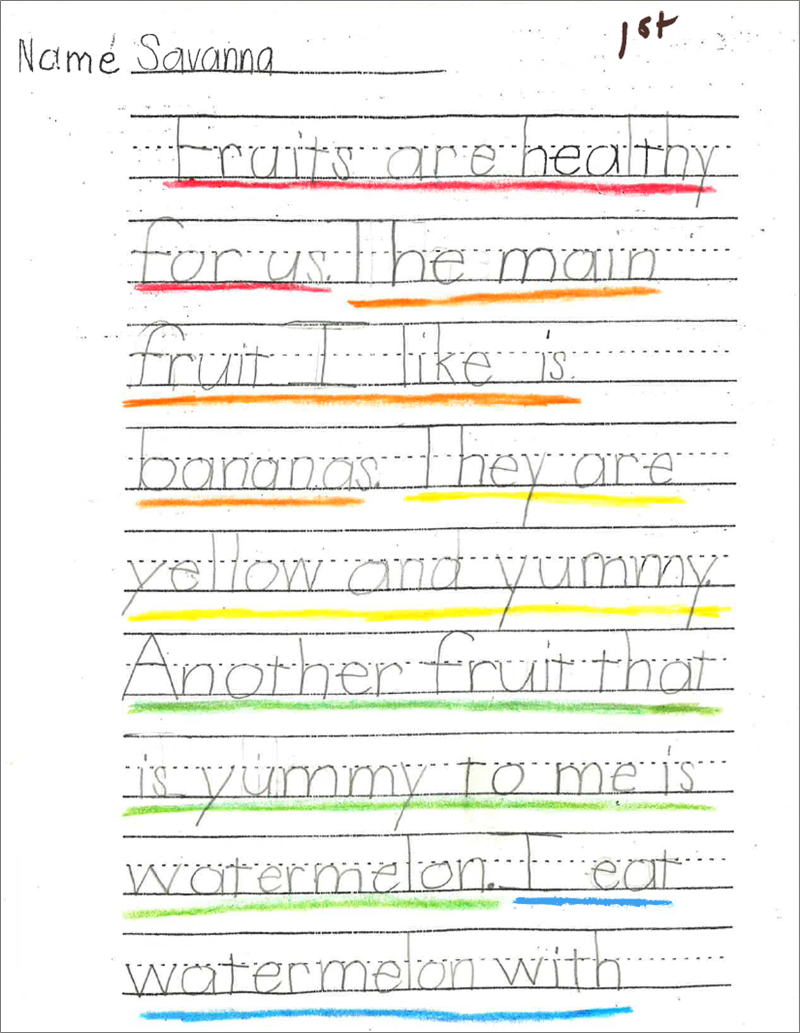 1st
Name Savanna
Fruits are healthy
for us. The main
fruit I like is
bananas. They are
yellow and yummy.
Another fruit that
is yummy to me is
watermelon. I eat
watermelon with